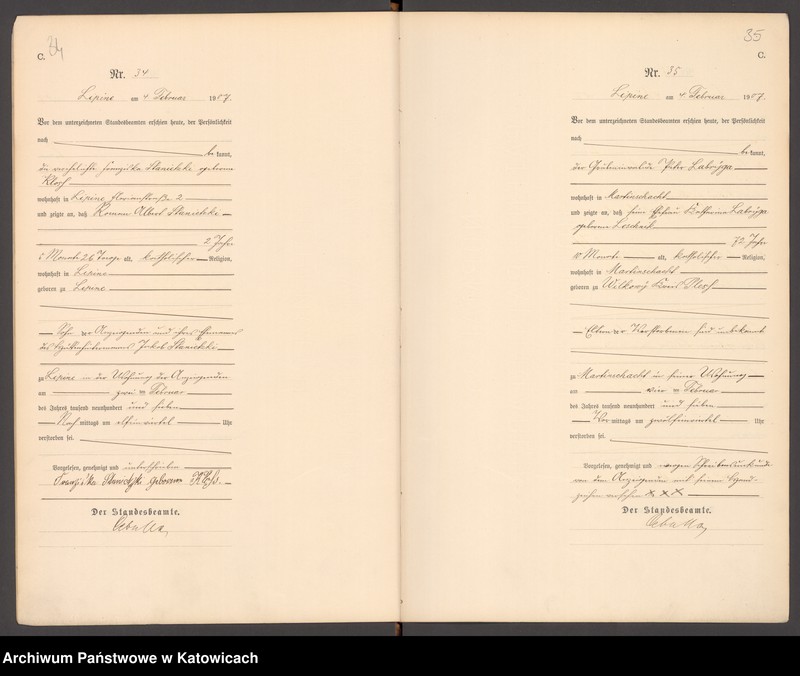 34
C.
Nr. 34
Lipine am 4 Februar 1907.
Vor dem unterzeichneten Standesbeamten erschien heute, der Persönlichkeit
nach
be kannt,
die verehelichte Franziska geborene
Klosz
wohnhaft in Lipine Florianstraße 2
und zeigte an, daß Roman Albert
2 Jahr
Monate 26 Tage alt, katholischer Religion,
wohnhaft in Lipine
geboren zu Lipine
Sohn der Anzeigenden und ihres Ehemannes
des Jakob
zu Lipine in der Wohnung der Anzeigenden
am zwei ten Februar
des Jahres tausend neunhundert und sieben
Nach mittags um elfeinviertel Uhr
verstorben sei.
Vorgelesen, genehmigt und unterschrieben
Franziska geborene
Der Standesbeamte.
35
C.
Nr. 35
Lipine am 4 Februar 1907.
Vor dem unterzeichneten Standesbeamten erschien heute, der Persönlichkeit
nach
be kannt,
der Peter Labryga
wohnhaft in Martinschacht
und zeigte an, daß seine Ehefrau Katharina Labryga
geborene
72 Jahr
Monate alt, katholischer Religion,
wohnhaft in Martinschacht
geboren zu Wilkowy Kreis Pless
Eltern der Verstorbenen sind unbekannt
zu Martinschacht in seiner Wohnung
am vier ten Februar
des Jahres tausend neunhundert und sieben
Vor mittags um zwölfeinviertel Uhr
verstorben sei.
Vorgelesen, genehmigt und wegen Schreibensunkunde
von dem Anzeigenden mit seinem Hand-
zeichen versehen XXX
Der Standesbeamte.
Archiwum Państwowe w Katowicach